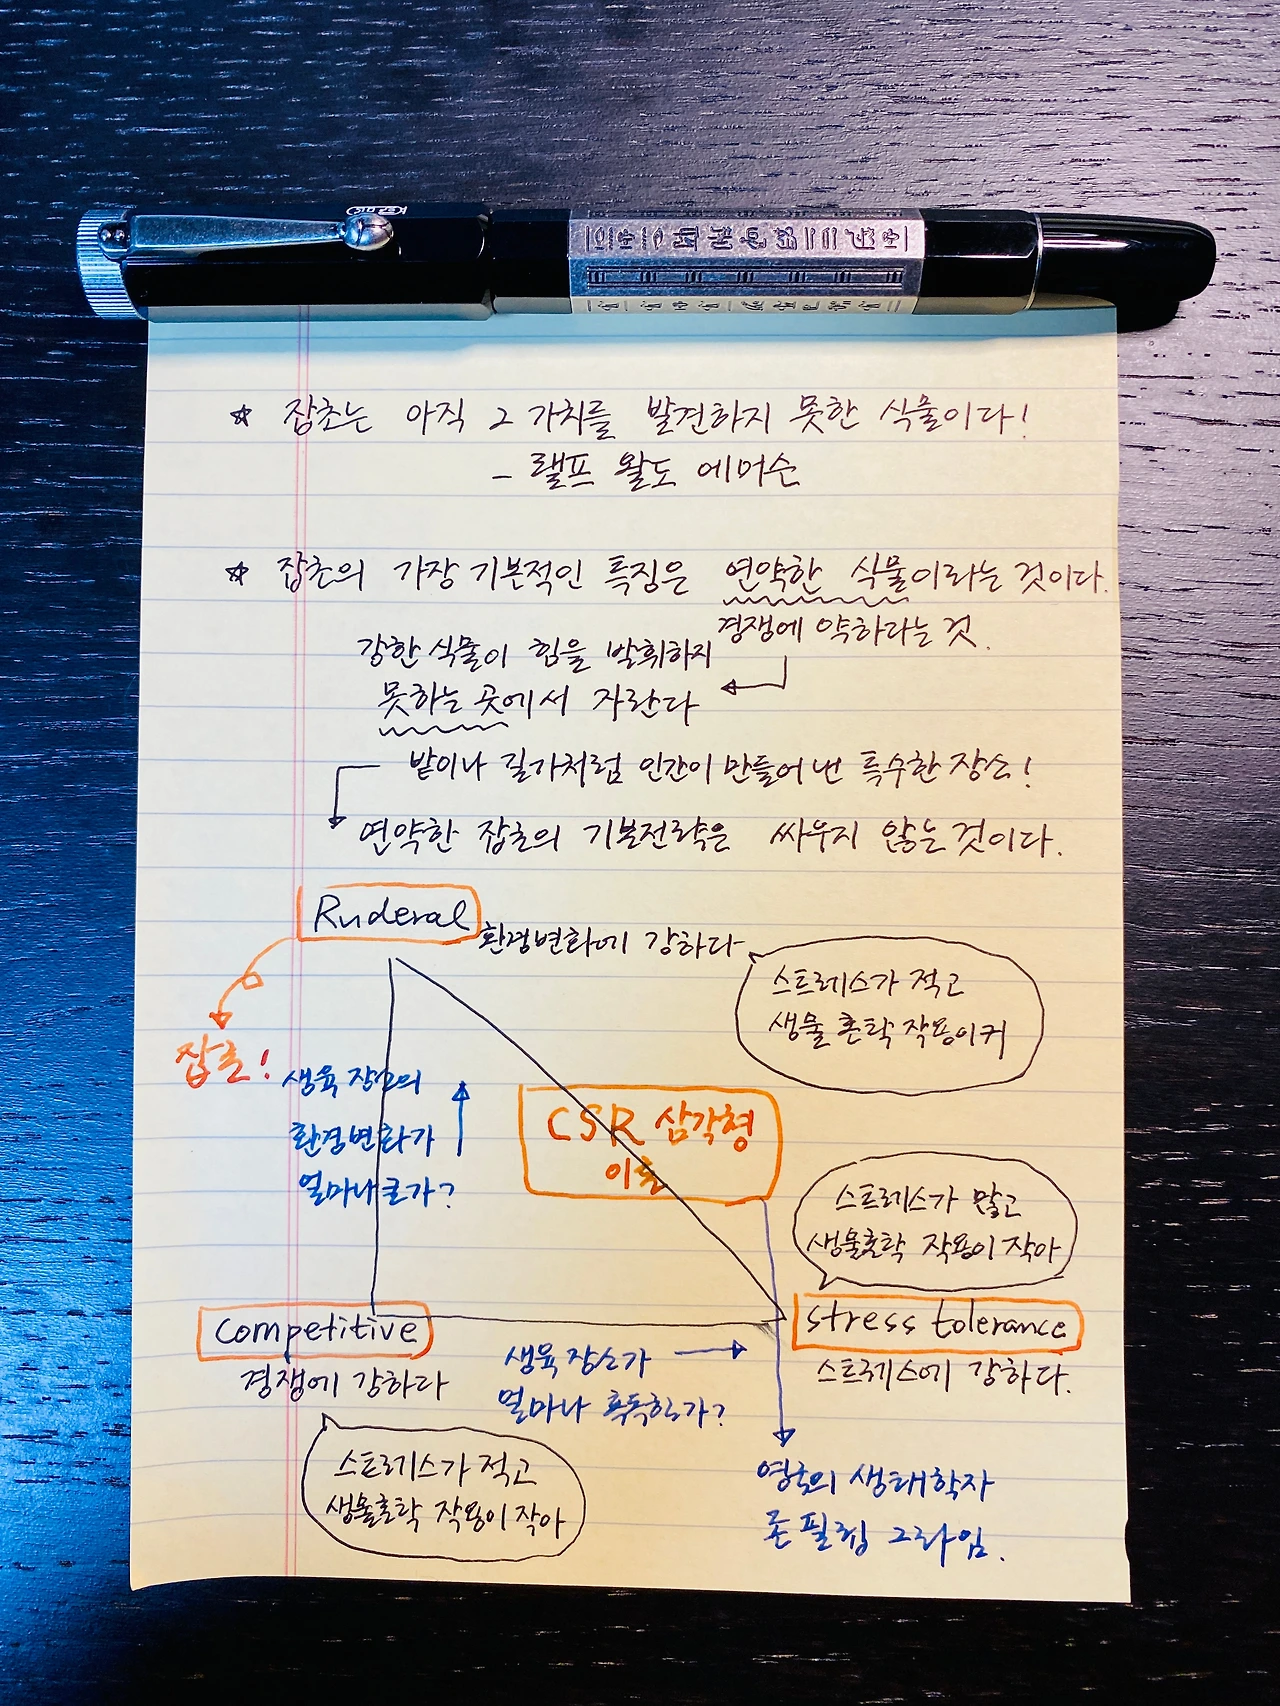 ☆ 잡초는 아직 그 가치를 발견하지 못한 식물이다!
- 랠프 왈도 에머슨
☆ 잡초의 가장 기본적인 특징은 연약한 식물이라는 것이다.
경쟁에 약하라는 것.
강한 식물이 힘을 발휘하지
못하는 곳에서 자란다
밭이나 길가처럼 인간이 만들어 낸 특수한 장소!
연약한 잡초의 기본전략은 싸우지 않는 것이다.
Ruderal
환경변화에 강하다
스트레스가 적고
생물 흔탁 작용이 커
잡초!
생육 장소의
환경변화가
얼마나 큰가?
CSR 삼각형
이론
스트레스가 많고
생물흔탁 작용이 작아
competitive
경쟁에 강하다
stress tolerance
스트레스에 강하다.
생육 장소가
얼마나 혹독한가?
스트레스가 적고
생물흔탁 작용이 작아
영국의 생태학자
존 필립 그라임.